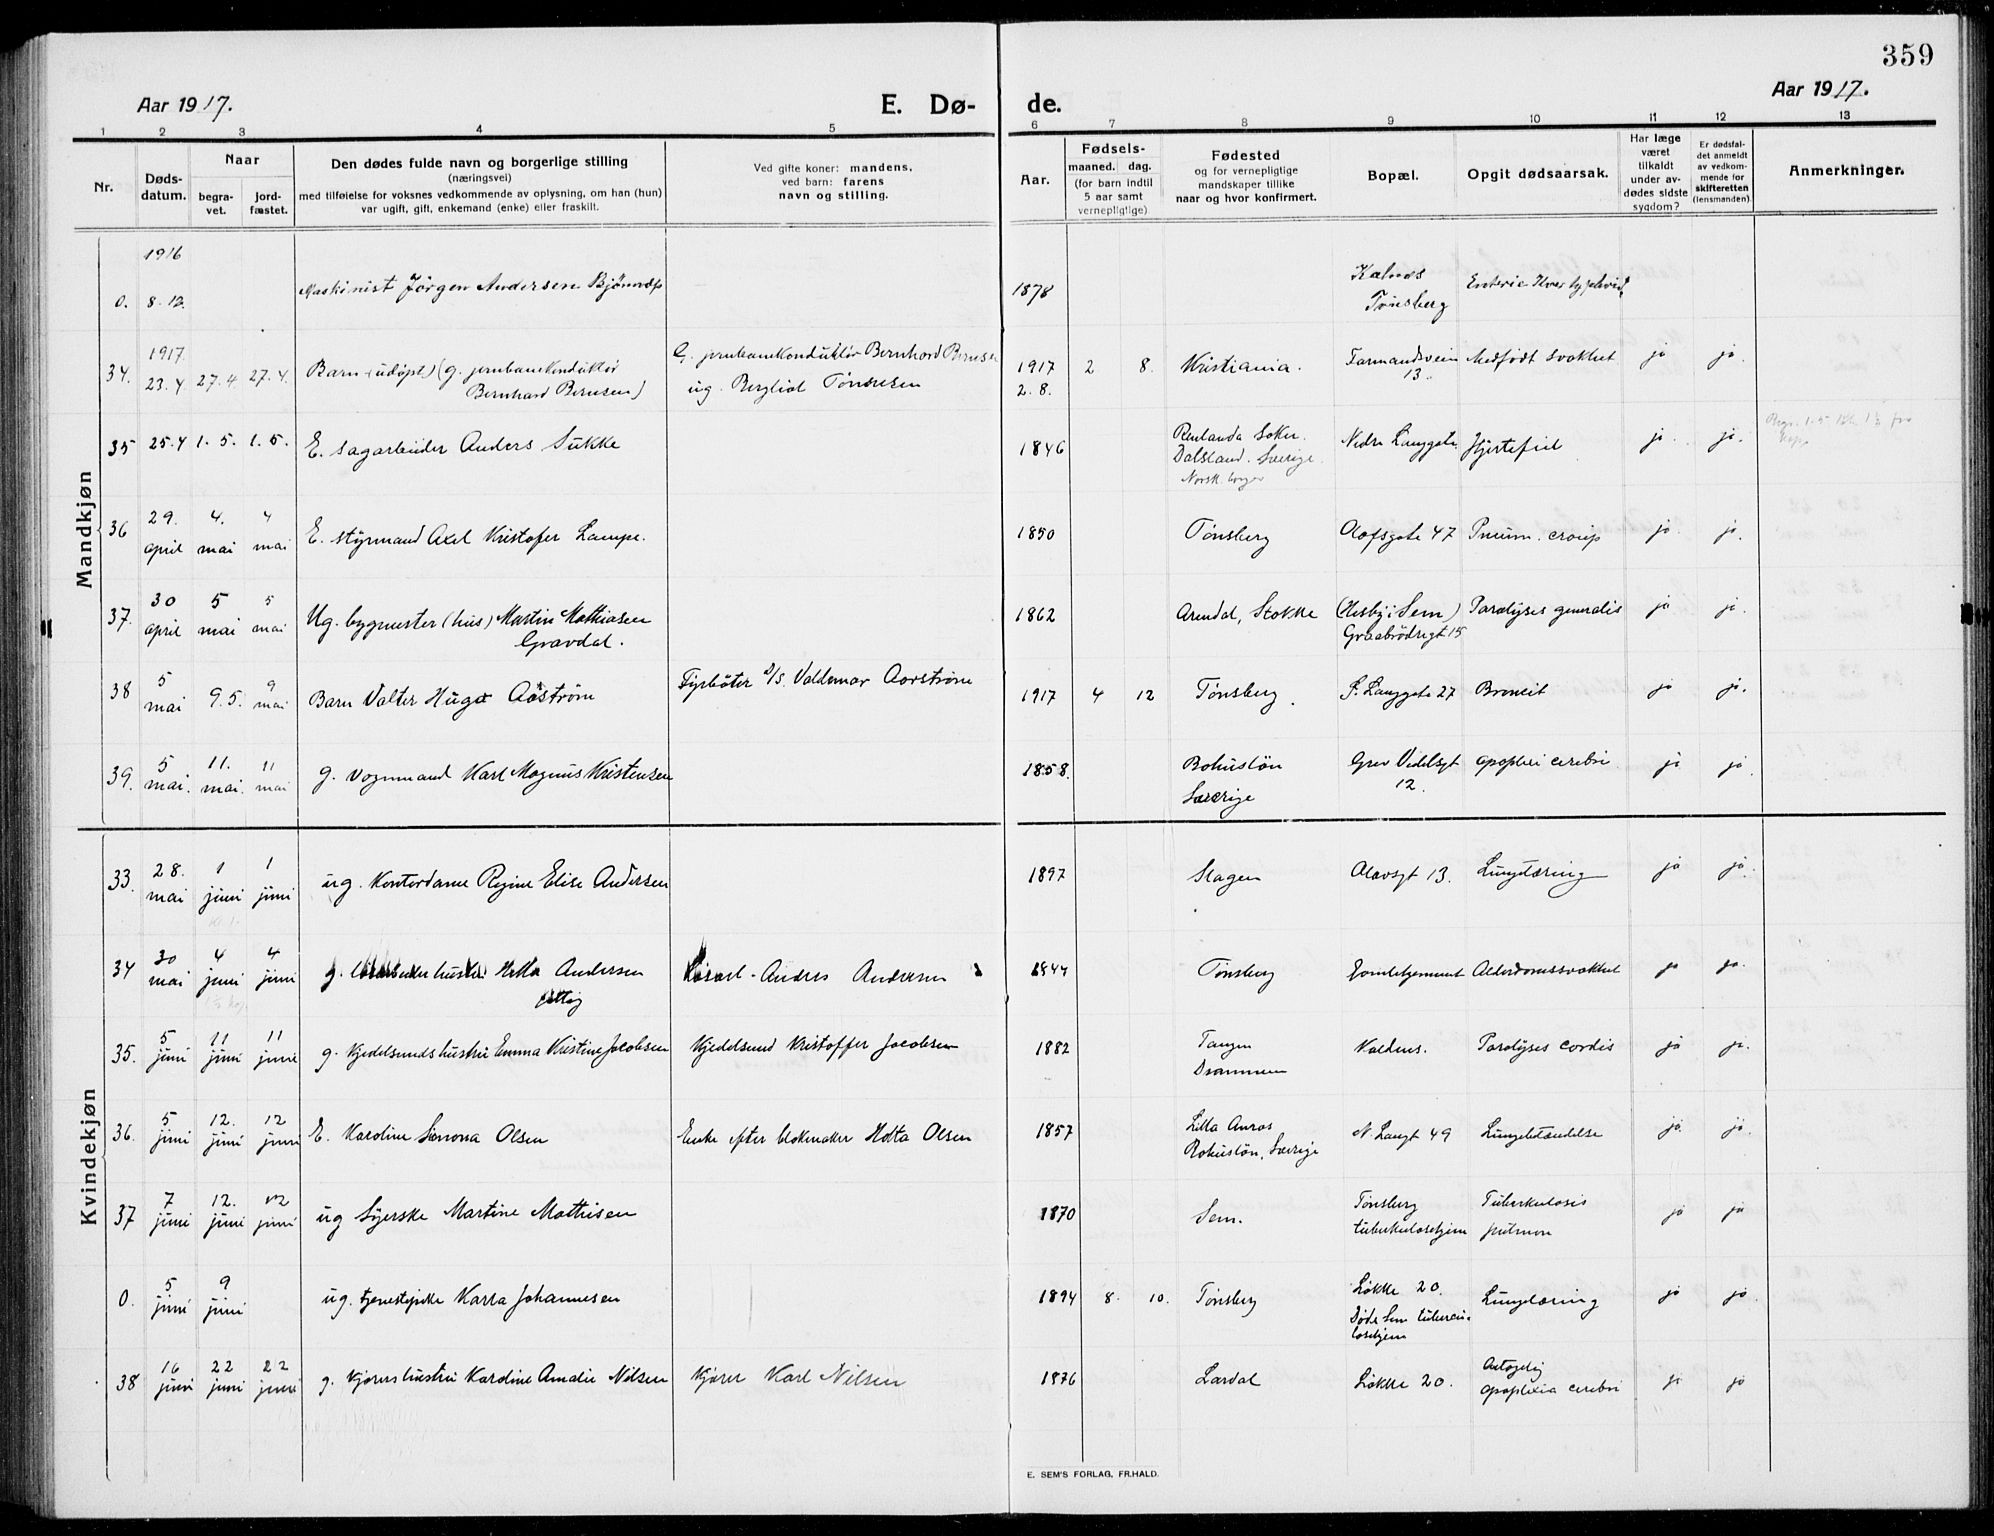 359
Aar 1917.
E. Dø-
de.
Aar 1917.
1 2 3 4 5 6 7 8 9 10 11 12 13
Nr.
Døds-
datum.
Naar
begra-
vet.
jord-
fæstet.
Den dødes fulde navn og borgerlige stilling
(næringsvei)
med tilføielse for voksnes vedkommende av oplysning, om han (hun)
var ugift, gift, enkemand (enke) eller fraskilt.
Ved gifte koner: mandens,
ved barn: farens
navn og stilling.
Aar.
Fødsels-
maaned. dag.
(for barn indtil
5 aar samt
vernepligtige)
Fødested
og for vernepligtige
mandskaper tillike
naar og hvor konfirmert.
Bopæl.
Opgit dødsaarsak.
Har læge
været
tilkaldt
under av-
dødes sidste
sygdom?
Er dødsfal-
det anmeldt
av vedkom-
mende for
skifteretten
(lensmanden)
Anmerkninger.
Mandkjøn
1916
0. 8-12. Maskinist Jörgen Andersen 1878 Kalnes
Tønsberg Enteric
1917.
34. 23.4 27.4 27.4. Barn (udöpt) (g. jernbanekonduktör
Bernhard Berntsen)
G. jernbanekonduktör Bernhard
ug. Bergliot Tönnesen
1917 2 8. Kristiania. Farmandsveien
13. Medfødt svakhet ja ja.
2. 8.
35 25.4 1.5. 1.5. E. sagarbeider Anders Sukke 1846
Dalsland. Sverige.
Norsk borger
Nedre Langgate Hjertefeil ja. ja.
36 29.
april 4.
mai 4
mai E. styrmand Axel Kristofer Lampe. 1850 Tönsberg Olafsgate 47 Pneum. croup ja. ja.
37. 30
april 5
mai 5
mai Ug. bygmester (hus) Martin Mathiasen
Gravdal.
1862 Arendal, Stokke (Husby i Sem)
Graabrødregt 15 Paralyses generalis ja ja.
38 5
mai 9.5. 9
mai Barn Valter Hugo Aaström Fyrböter Valdemar Aarström 1917 4 12 Tönsberg. S. Langgate 27 Broncit ja ja.
39. 5
mai. 11.
mai. 11
mai g. vognmand Karl Magnus Kristensen 1858. Bohuslän
Sverige Grev Vedelsgt
12. apoplexi cerebri ja ja.
Kvindekjøn
33. 28.
mai 1
juni 1
juni ug. Kontordame Regine Elise Andersen 1897 Slagen Olavsgt 13. Lungetæring ja ja.
34 30
mai 4
juni 4
juni g. Andersen
Anders Andersen 1844 Tönsberg Gamlehjemmet Alderdomssvakhet ja ja.
35. 5
juni 11
juni 11
juni g. Kjedelsmeds hustru Emma Kristine Jacobsen Kjedelsmed Kristoffer Jacobsen 1882 Tangen
Drammen Kaldnes. Paralyses cordis ja ja.
36. 5
juni 12.
juni 12
juni E. Karoline Simona Olsen Enke efter blokmaker Olsen 1857
Bohuslän, Sverige
N. Langt 49 Lungebetændelse ja. ja.
37 7
juni 12.
juni 12
juni ug Syerske Martine Mathisen 1870 Sem. Tönsberg
tuberkulosehjem Tuberkulosis
pulmon ja ja
0. 5
juni 9
juni ug. tjenestepike Karra Johannesen 1894 8. 10. Tönsberg Løkke 20.
Döde Sem tubercu-
losehjem Lungetæring ja ja
38 16
juni 22
juni 22
juni g. Kjørers hustru Karoline Amalie Nilsen Kjører Karl Nilsen 1876 Lardal Løkke 20.
apoplexia cerebri ja ja
E. SEM'S FORLAG, FR.HALD.